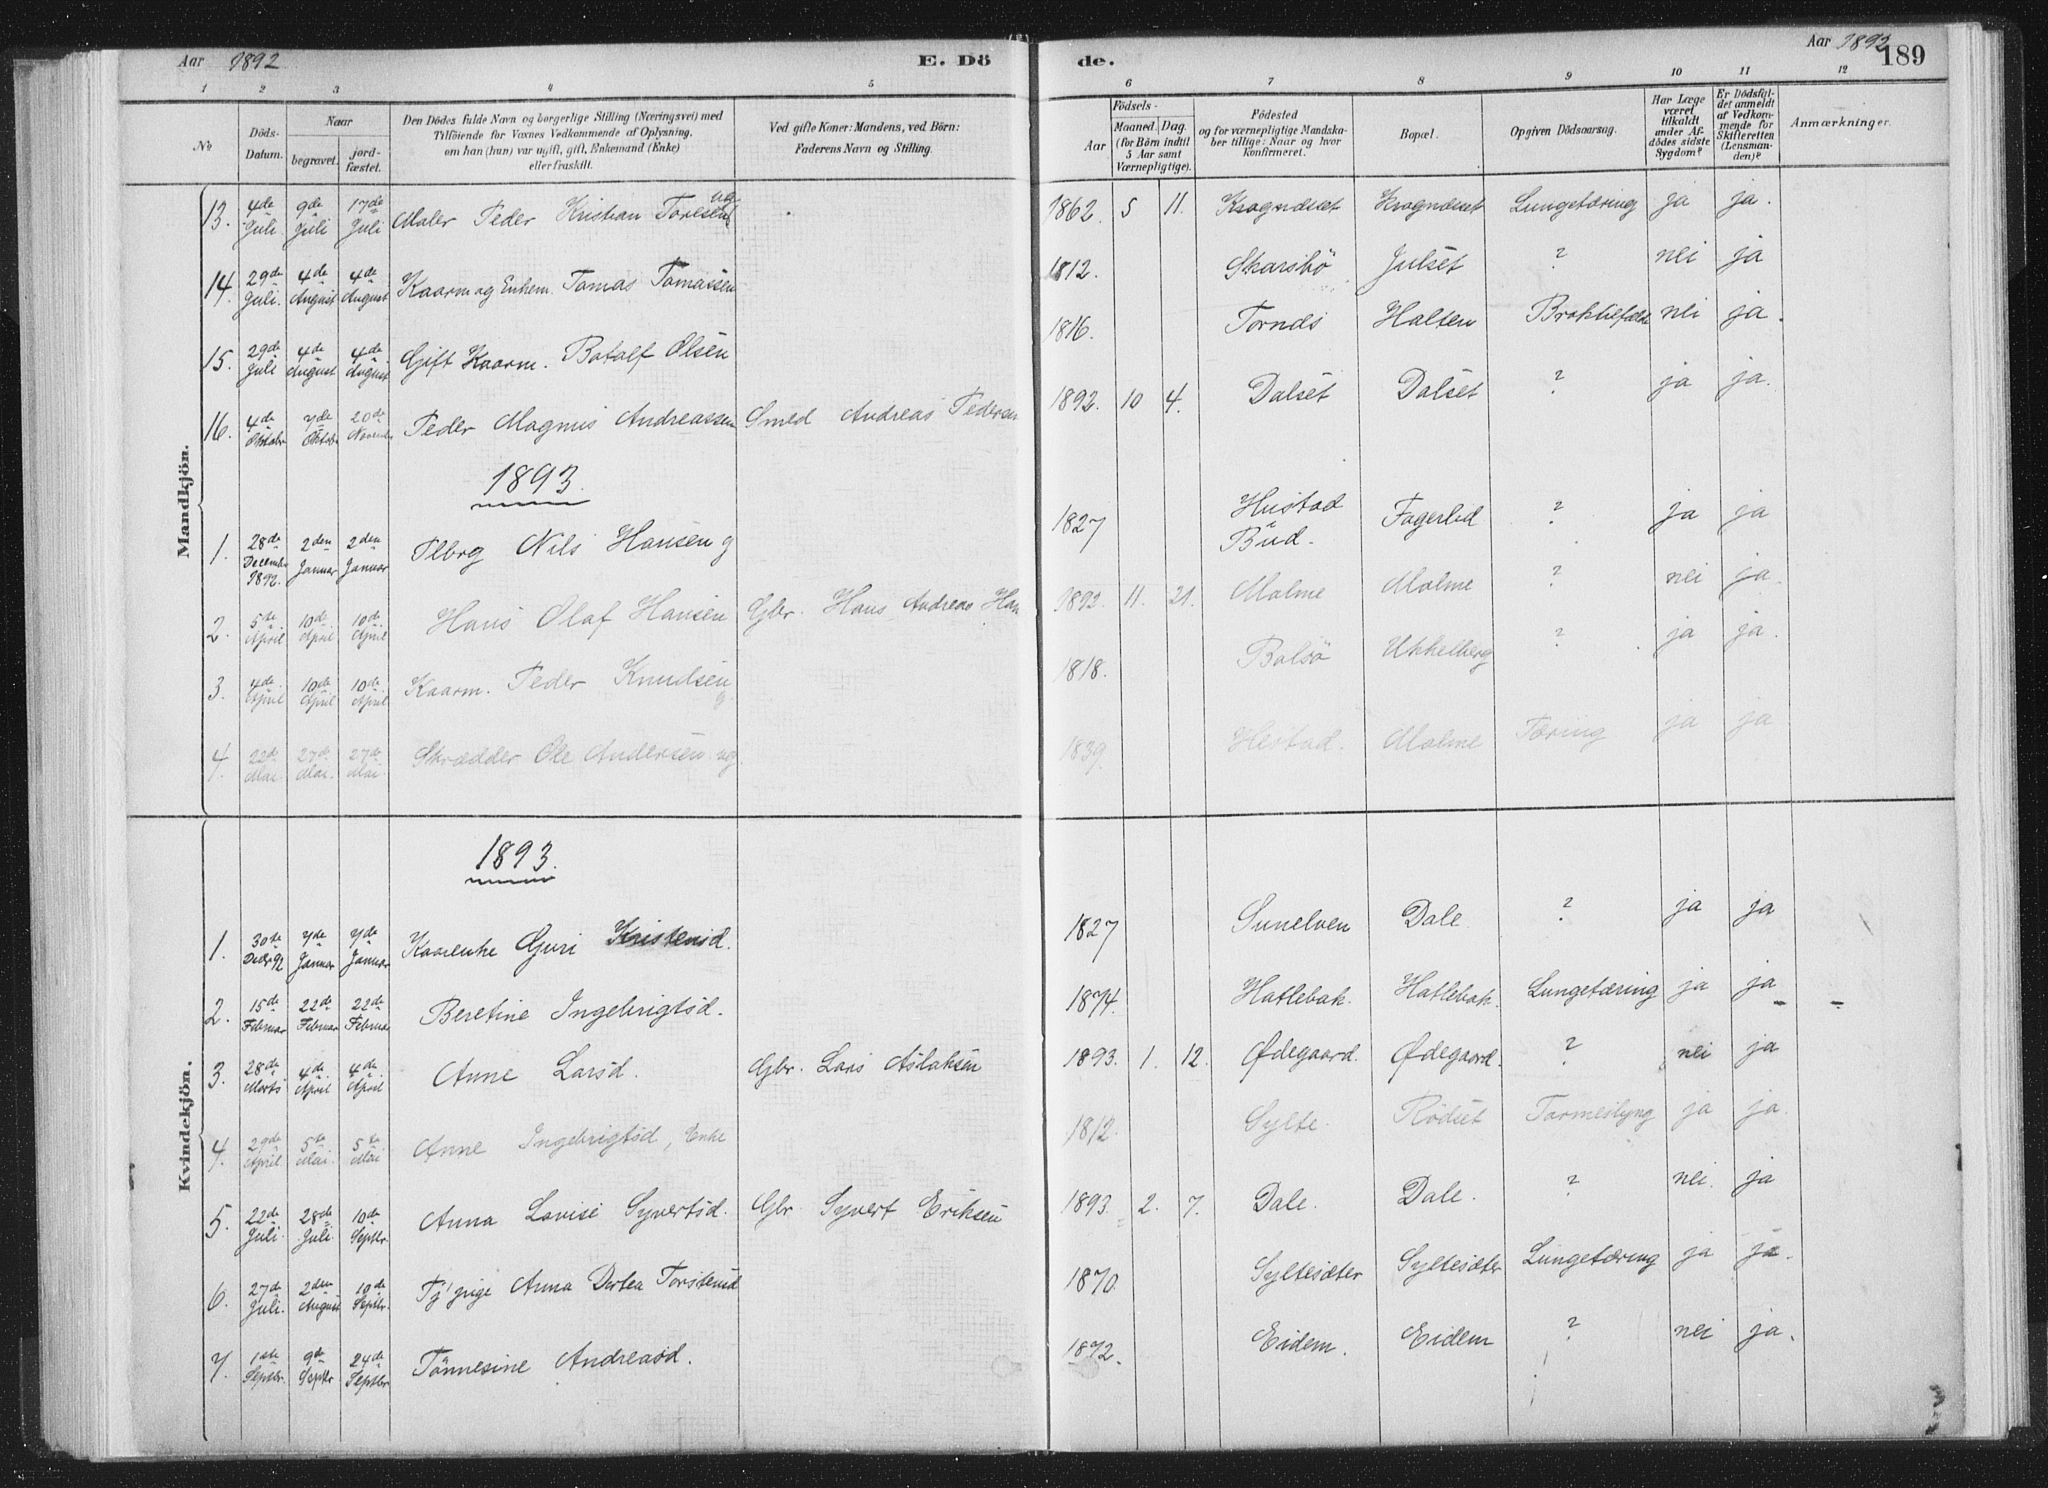 Aar 1892 E. Dö de. Aar 1892 189
1 2 3 4 5 6 7 8 9 10 11 12
No
Döds-Datum.
Naar
begravet.
jord-fæstet.
Den Dödes fulde Navn og borgerlige Stilling (Næringsvei) med
Tilföiende for Voxnes Vedkommende af Oplysning,
om han (hun) var ugift, gift, Enkemand (Enke)
eller fraskilt.
Ved gifte Koner: Mandens, ved Börn:
Faderens Navn og Stilling.
Födsels-
Aar
Maaned. Dag.
(for Börn indtil
5 Aar samt
Værnepligtige).
Födested
og for værnepligtige Mandska-
ber tillige: Naar og hvor
Konfirmeret.
Bopæl.
Opgiven Dödsaarsag.
Har Læge
været
tilkaldt
under Af-
dödes sidste
Sygdom?
Er Dödsfal-
det anmeldt
af Vedkom-
mende for
Skifteretten
(Lensman-
den)?
Anmærkninger.
Mandkjön.
13. 4de Juli 9de Juli 17de Juli Maler Peder Kristian Toresen ug 1862. 5 11. Krognæset Krognæset Lungetæring ja ja.
14. 29de Juli. 4de August 4de August Kaarm og Enkem. Tomas Tomassen 1812. Skarsbö Julset ? nei ja
15. 29de Juli 4de August 4de August Gift Kaarm. Botolf Olsen 1816. Tornes Halsen nei ja.
16. 4de Oktober 7de Oktober 20de November Peder Magnus Andreassen Smed Andreas Pedersen 1892. 10 4. Dalset Dalset ? ja ja.
1893.
1. 28de December 1892. 2den Januar 2den Januar Nils Hansen g 1827 Hustad Bud. Fagerlid ? ja ja
2. 5te April 10de April 10de April Hans Olaf Hansen Gbr. Hans Andreas Han 1892. 11. 21. Malme Malme ? nei ja.
3. 4de April 10de April 10de April Kaarm. Peder Knudsen g 1818. Bolsö Ukkelberg ? ja ja.
4. 22de Mai. 27de Mai. 27de Mai. Skrædder Ole Andersen ug. 1839. Hustad. Malme Tæring ja ja
Kvindekjön.
1893.
1. 30te Decbr 92 7de Januar 7de Januar Kaarenke Guri Kristensd. 1827 Sunelven Dale ? ja ja
2. 15de Februar 22de Februar 22de Februar Beretine Ingebrigtsd. 1874. Hatlebak. Hatlebak. Lungetæring ja ja - -
3. 28de Marts 4de April 4de April Anne Larsd. Gbr. Lars Aslaksen 1893. 1. 12. Ødegaard. Ødegaard. ? nei ja
4. 29de April 5te Mai. 5te Mai Anne Ingebrigtsd, Enke 1812. Sylte. Rödset Tarmeslyng ja ja.
5. 22de Juli. 28de Juli. 10de Septbr. Anna Lovise Syvertsd. Gbr. Syvert Eriksen 1893. 2. 7. Dale. Dale. ? nei. ja
6. 27de Juli. 2den August 10de Septbr. Anna Dortea Torstensd 1870. Syltesæter Syltesæter Lungetæring ja ja.
7. 1ste Septbr. 9de Septbr 24de Septbr Tönnesine Andreasd. 1872. Eidem. Eidem ? nei ja.